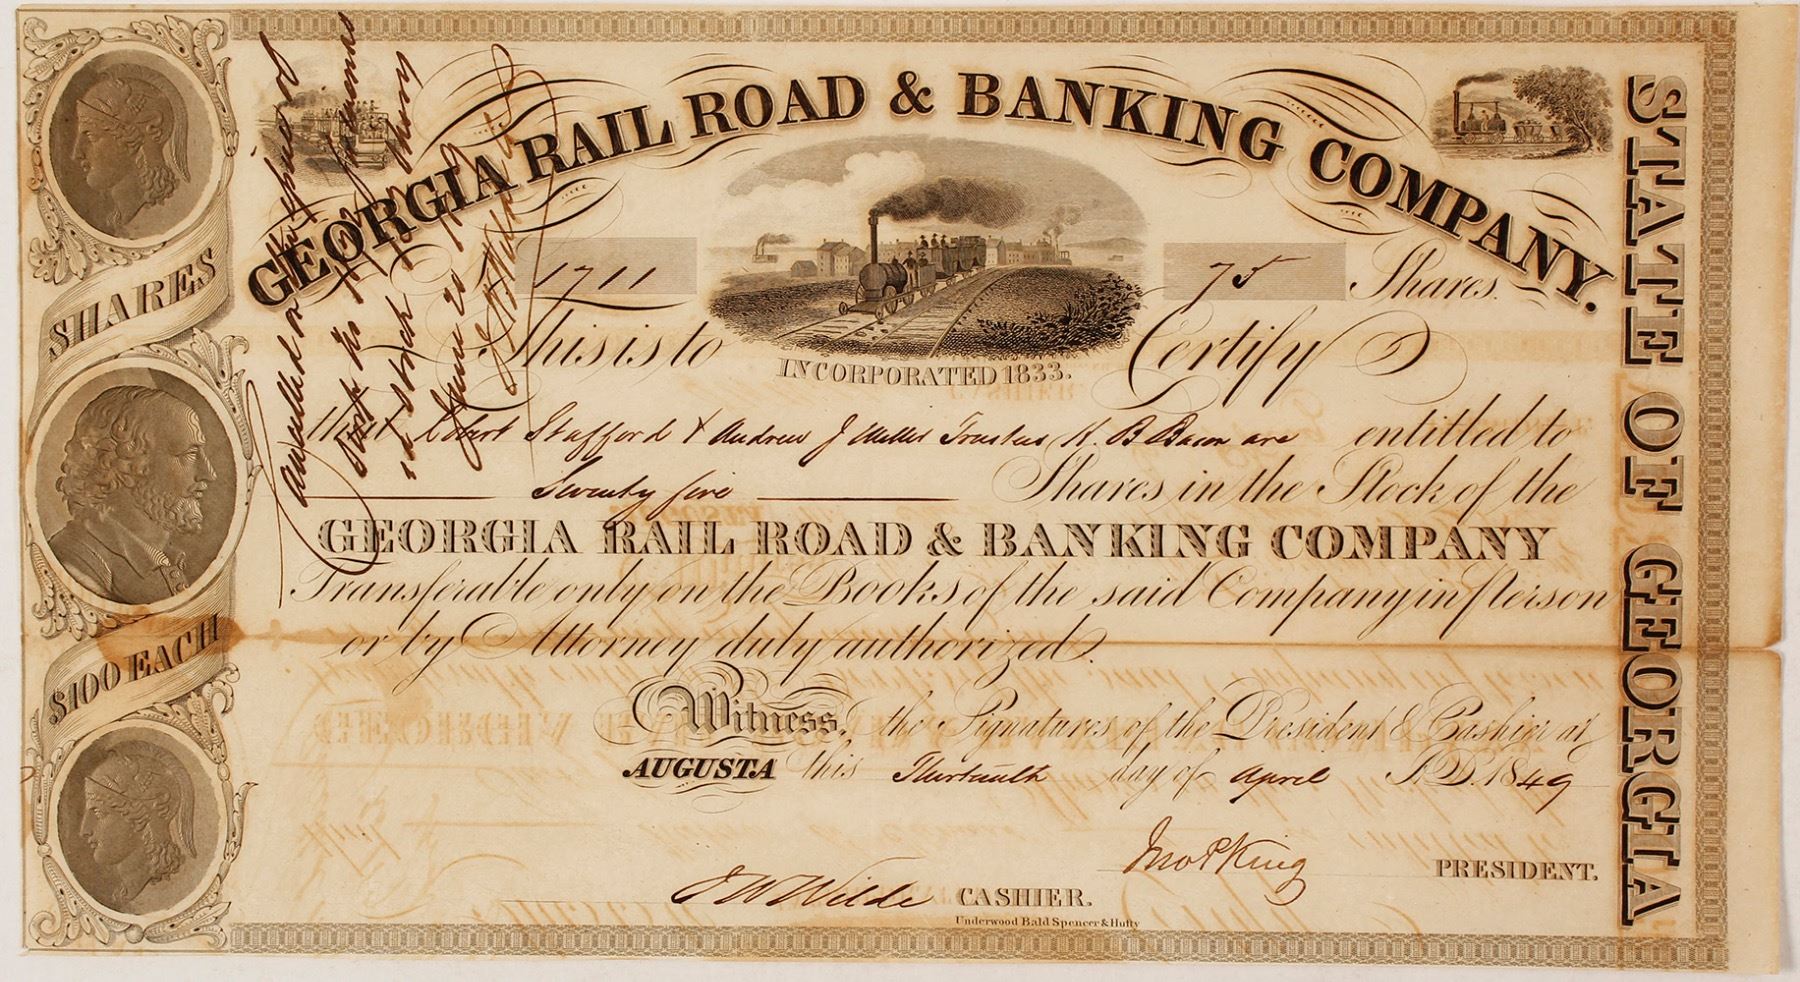 GEORGIA RAIL ROAD & BANKING COMPANY.
SHARES
$100 EACH
STATE OF GEORGIA
1711
75 Shares.
INCORPORATED 1833.
This is to Certify
that Robert Stafford & Andrew J Miller Trustees R. B Bacon are entitled to
Seventy five Shares in the Stock of the
GEORGIA RAIL ROAD & BANKING COMPANY
Transferable only on the Books of the said Company in person
or by Attorney duly authorized.
Witness, the Signatures of the President & Cashier at
AUGUSTA this Thirteenth day of April A.D. 1849
Jno P King PRESIDENT.
J W Wilde CASHIER.
Underwood Bald Spencer & Hufty
Cancelled on
in stock
June 20